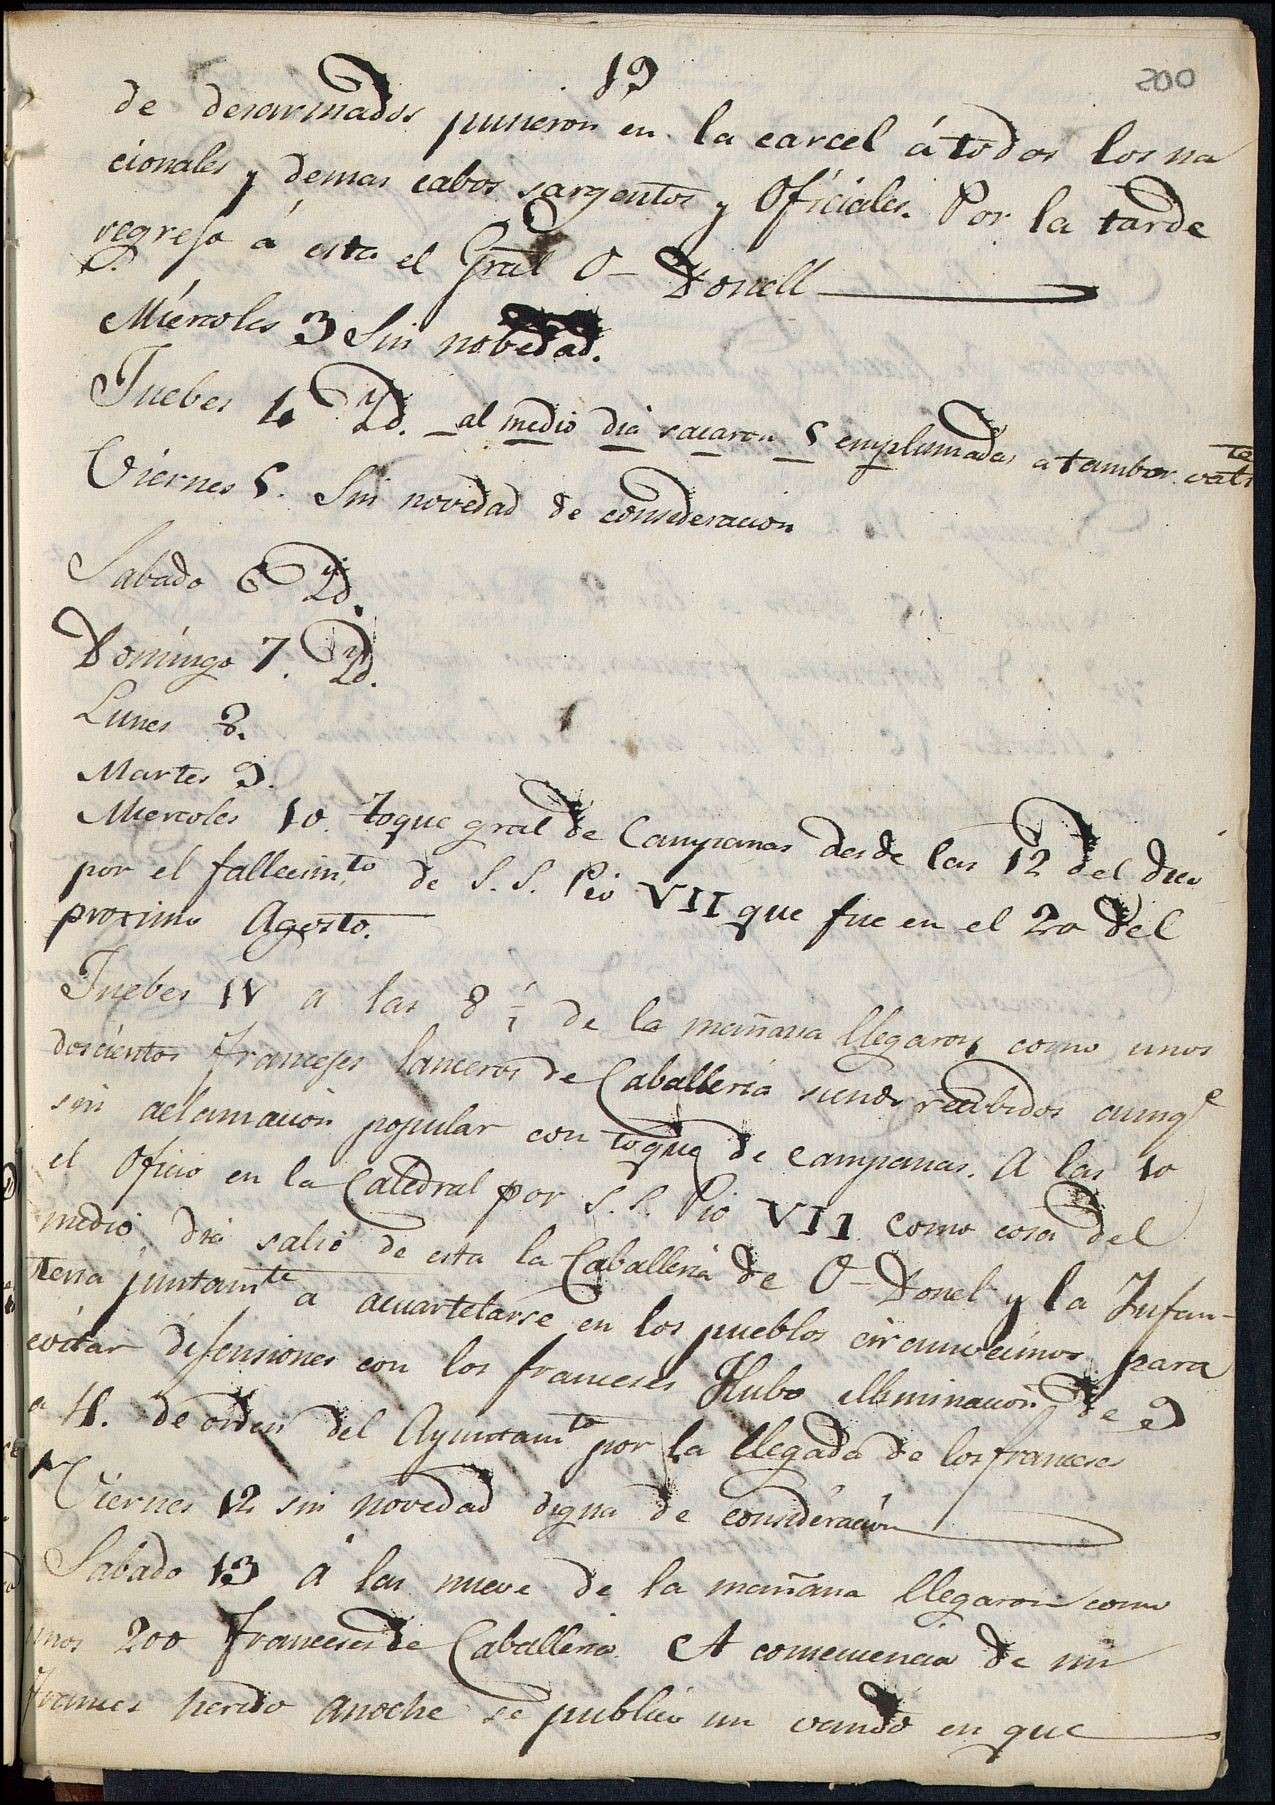 19
200
de desarmados pusieron en la carcel á todos los na
cionales y demas cabos sargentos y Oficiales. Por la tarde
regreso á esta el Gral O-Donell
Miercoles 3 Sin nobedad.
Juebes 4 Yd. al medio dia sacaron 5 emplumadas a tambor vatte
Viernes 5. Sin novedad de consideracion
Sabado 6 Yd.
Domingo 7. Yd.
Lunes 8.
Martes 9.
Miercoles 10. Toque gral de Campanas desde las 12 del dia
por el fallecimto de S. S. Pio VII que fue en el 20 del
proximo Agosto.
Juebes 11 a las 8 1/2 de la mañana llegaron como unos
doscientos franceses lanceros de Caballeria siendo recibidos aunqe
sin aclamacion popular con toque de campanas. A las 10
el Oficio en la Catedral por S. S. Pio VII. como cosa del
medio dia salió de esta la Caballeria de O-Donel y la Infan-
teria juntamte a acuartelarse en los pueblos circunvecinos para
evitar disensiones con los franceses Hubo illuminacion de 9
a 11. de orden del Ayuntamto por la llegada de los franceses
Viernes 12 sin novedad digna de consideración
Sabado 13 A las nueve de la mañana llegaron como
unos 200 franceses de Caballeria. A consecuencia de un
frances herido anoche se publico un vando en que